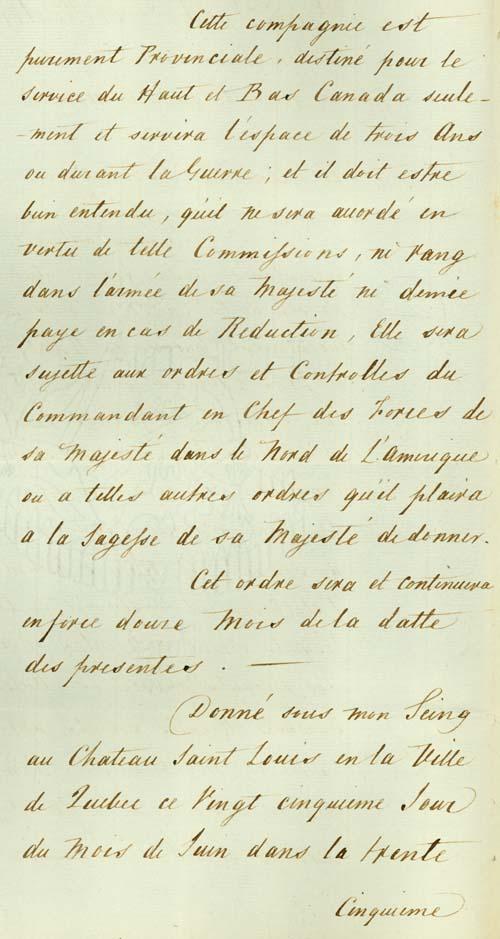 Cette compagnie est
purement Provinciale, destiné pour le
service du Haut et Bas Canada seule-
-ment et servira l'espace de trois Ans
ou durant la Guerre; et il doit estre
bien entendu, qu'il ne sera accordé en
vertu de telle Commissions, ni rang
dans l'armée de sa Majesté ni demie
paye en cas de Reduction, Elle sera
sujette aux ordres et Controlles du
Commandant en Chef des Forces de
sa Majesté dans le Nord de L'Amerique
ou a telles autres ordres qu'il plaira
a la Sagesse de sa Majesté de donner.
Cet ordre sera et continuera
en force douze Mois de la datte
des presentes. —
Donné sous mon Seing
au Chateau Saint Louis en la Ville
de Quebec ce Vingt cinquieme Jour
du Mois de Juin dans la trente
Cinquieme